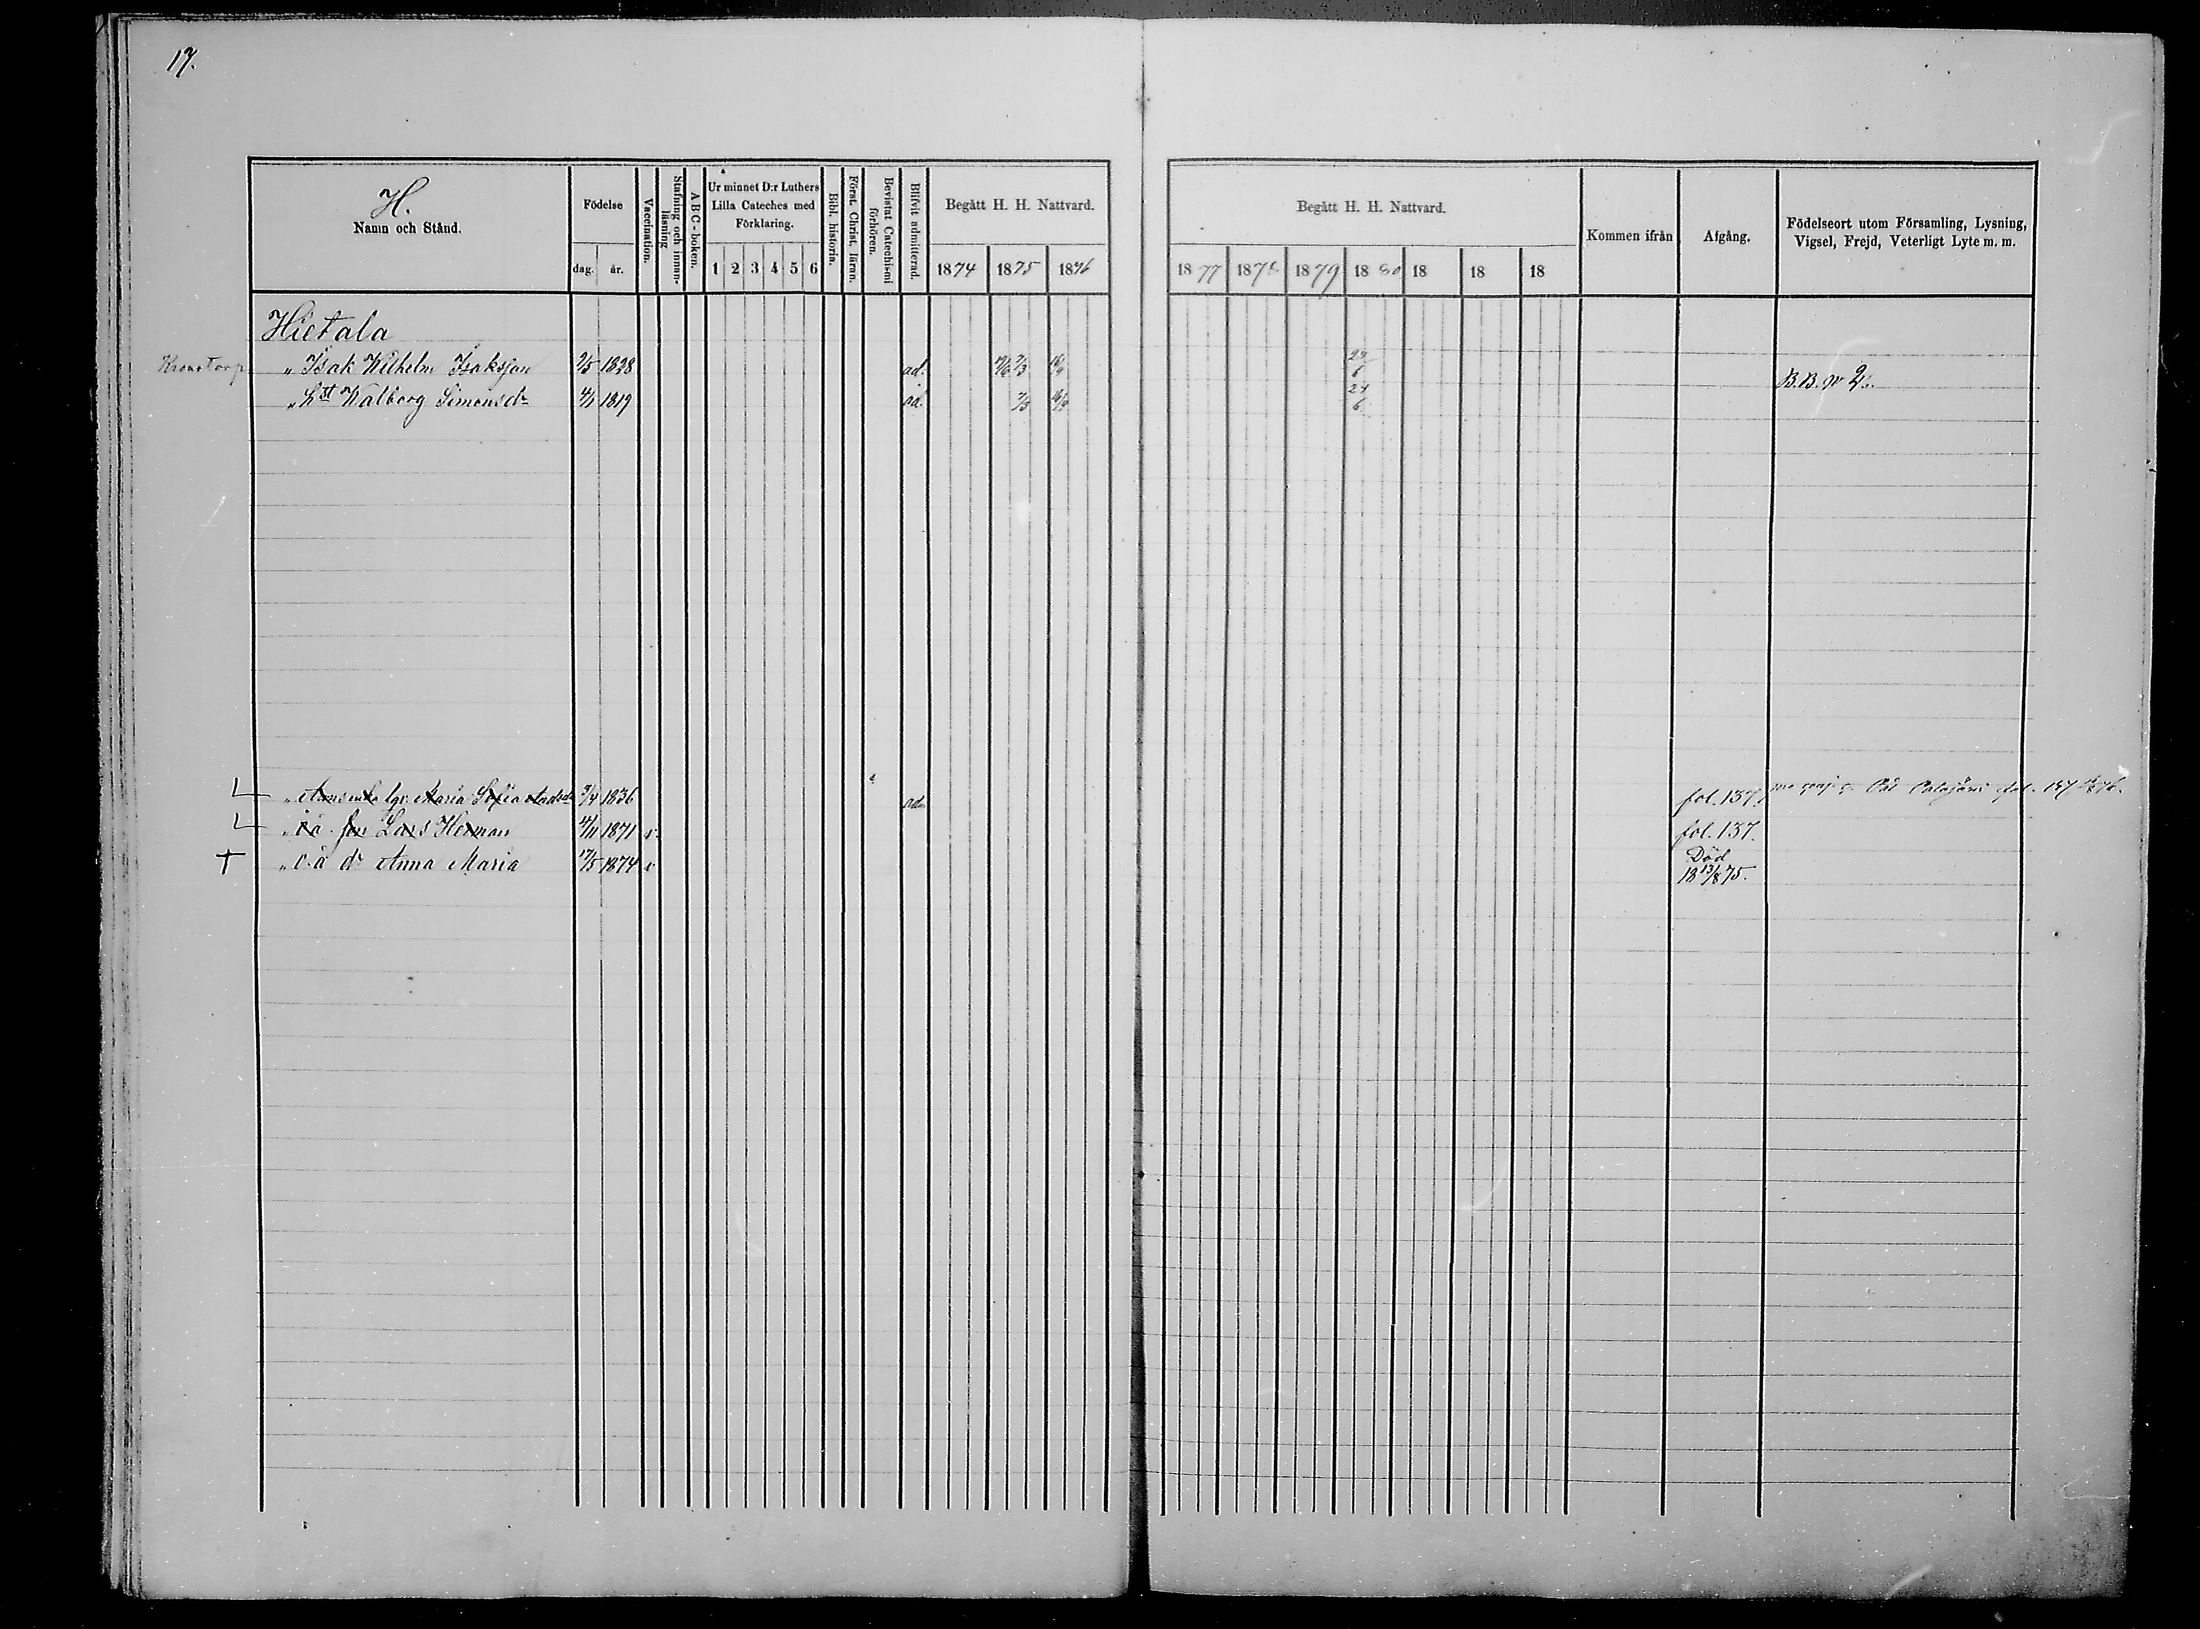 17.
H.
Namn och Stånd.
Födelse
dag. år.
Vaccination.
Stafning och innan-läsning
A B C - boken.
Ur minnet D:r Luthers
Lilla Cateches med
Förklaring.
1 2 3 4 5 6
Bibl. historia.
Först. Christ. läran.
Bevistat Catechismi förhören.
Blifvit admitterad.
Begått H. H. Nattvard.
1874 1875 1876
Begått H. H. Nattvard.
1877 1878 1879 1880 18 18 18
Kommen ifrån
Afgång.
Födelseort utom Församling, Lysning,
Vigsel, Frejd, Veterligt Lyte m. m.
Hietala
Kronotorp „ Isak Wilhelm Isaksson 2/5 1828 ad. 7/3 24/6 B.B. № 2.
„ Hst Walborg Simonsdr 4/1 1819 ad. 7/3 24/6
L „ Maria Sofia 3/4 1836 ad. fol. 137.
L „ o.ä. son Lars Herman 4/11 1871 v. fol. 137.
† „ o.ä dr Anna Maria 17/5 1874 v Död
18 13/8 75.